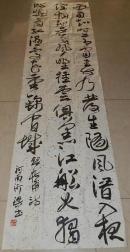 好雨知時節當春乃發生随風潜入夜
潤物細無聲野徑雲俱黑江船火獨
明曉看紅濕處花重錦官城